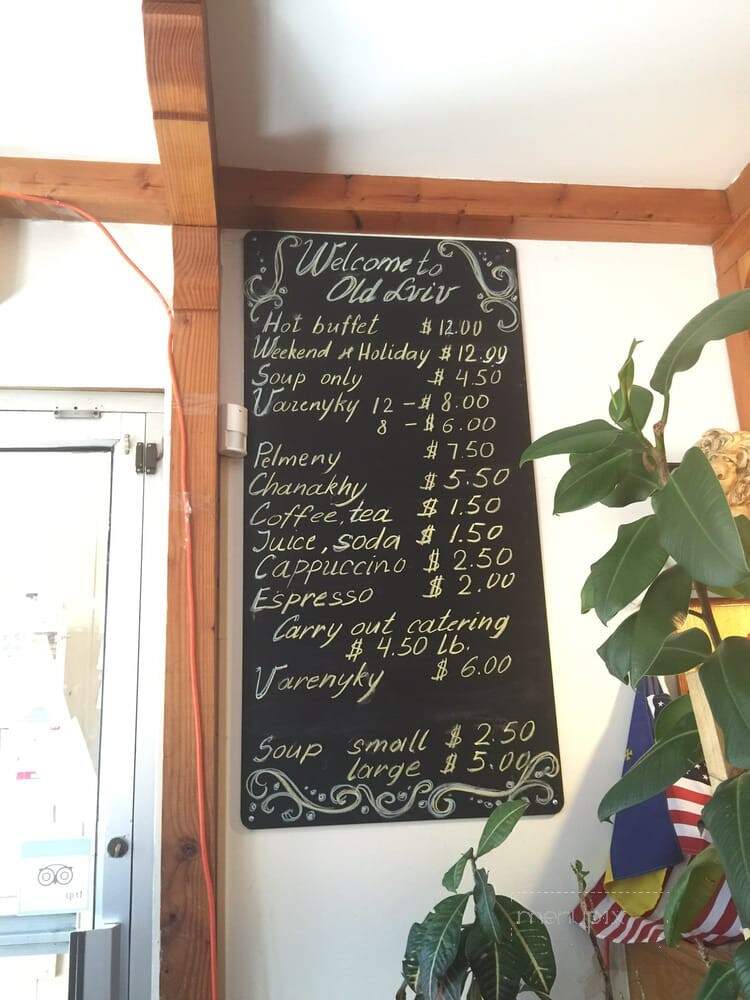 Welcome to
Old Lviv
Hot buffet $12.00
Weekend & Holiday $12.99
Soup only $4.50
Varenyky 12 - $8.00
8 - $6.00
Pelmeny $7.50
Chanakhy $5.50
Coffee, tea $1.50
Juice, soda $1.50
Cappuccino $2.50
Espresso $2.00
Carry out catering
$4.50 lb.
Varenyky $6.00
Soup small $2.50
large $5.00
menupix